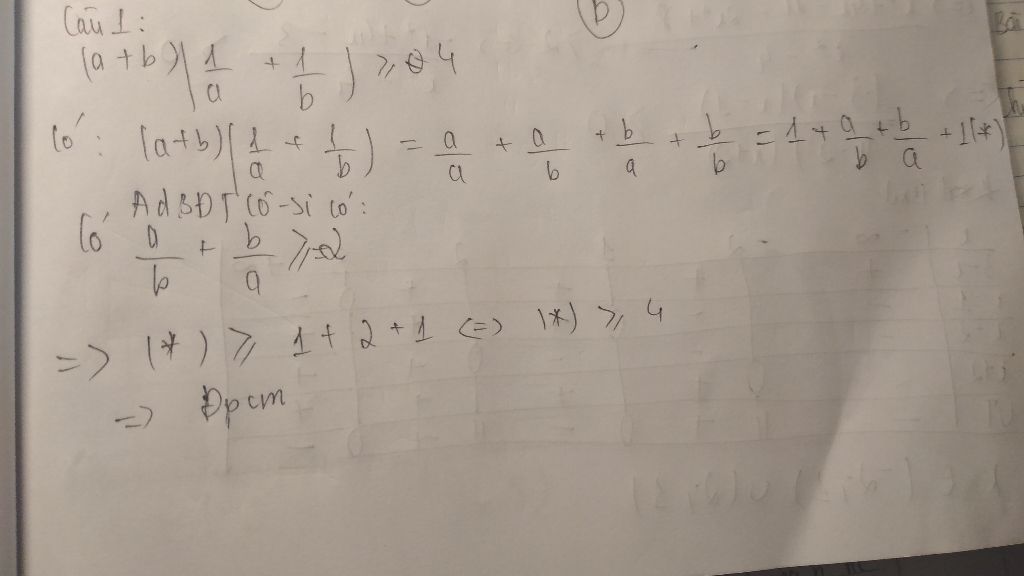 b
Câu 1:
(a+b)(1/a + 1/b) ⩾ 4
Có: (a+b)(1/a + 1/b) = a/a + a/b + b/a + b/b = 1 + a/b + b/a + 1 (*)
Ad BĐT Cô-si có:
Có a/b + b/a ⩾ 2
=> (*) ⩾ 1 + 2 + 1 <=> (*) ⩾ 4
=> Đpcm